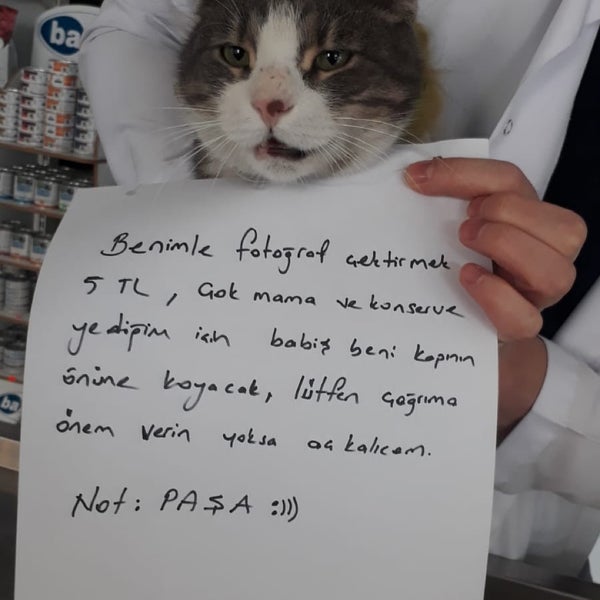 ba
Benimle fotoğraf çektirmek
5 TL, Çok mama ve konserve
yediğim için babiş beni kapının
önüne koyacak, lütfen çağrıma
önem verin yoksa aç kalıcam.
Not: PAŞA :)))
ba